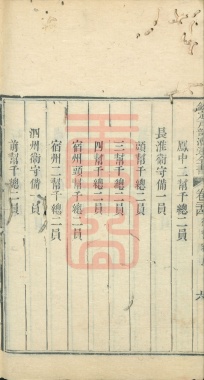 鳳中二幫千總二員
長淮衛守備一員
頭幫千總二員
三幫千總二員
四幫千總二員
宿州頭幫千總二員
宿州二幫千總二員
泗州衛守備一員
前幫千總二員